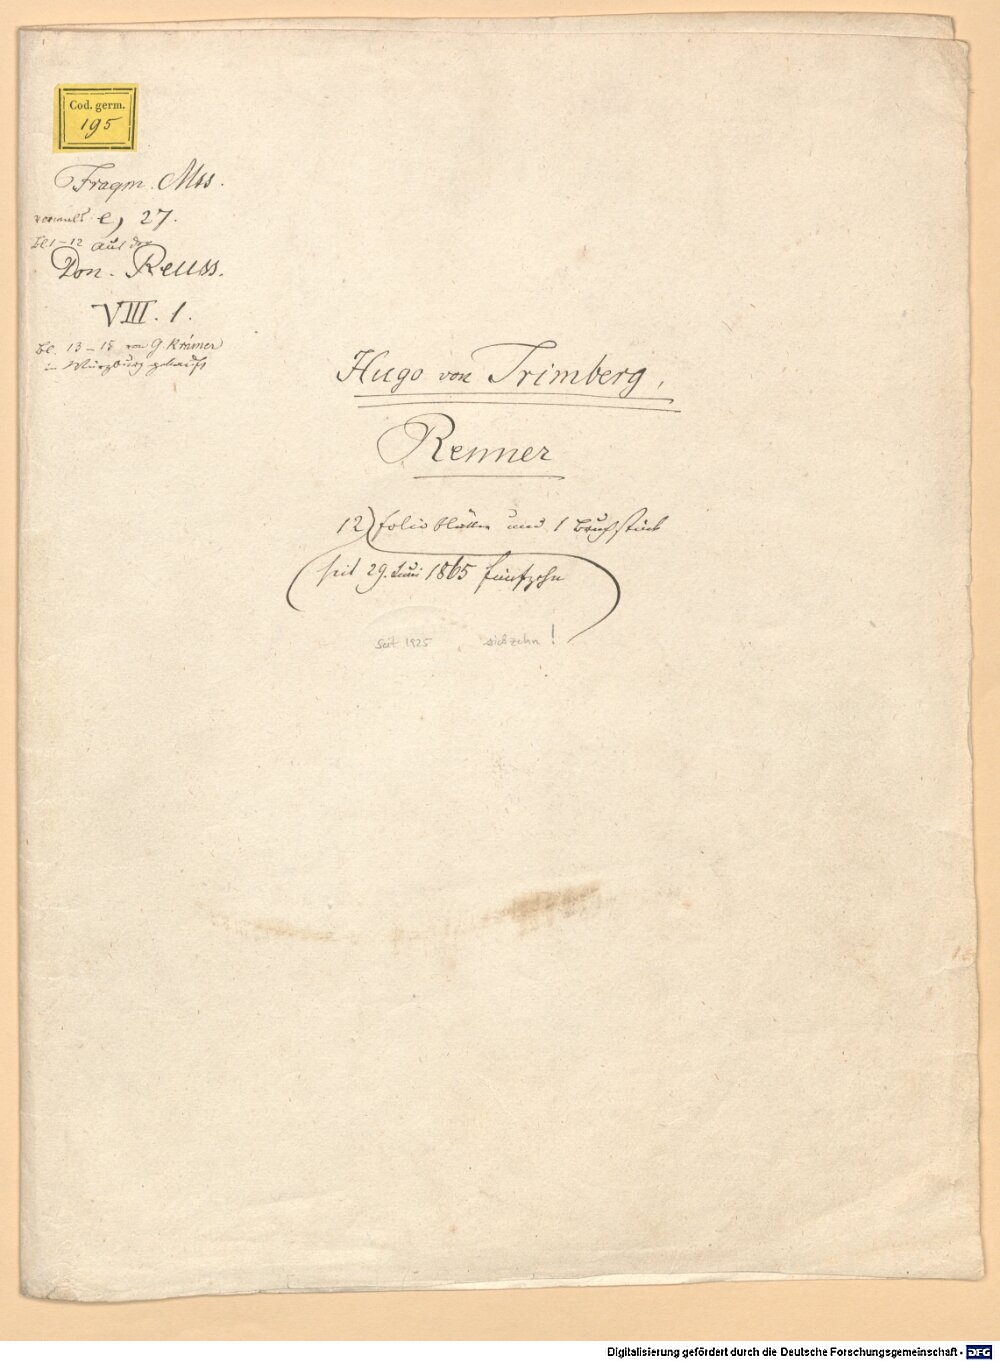 Cod. germ.
195
Fragm. Mss.
vormals e, 27.
Bl 1–12 aus der
Don. Reuss.
VIII. 1.
Bl. 13–15 von G. Krämer
in Würzburg gekauft
Hugo von Trimberg,
Renner
12 folioblätter und 1 Bruchstück
seit 29. Juni 1865 fünfzehn
seit 1925 siebzehn!
Digitalisierung gefördert durch die Deutsche Forschungsgemeinschaft - DFG